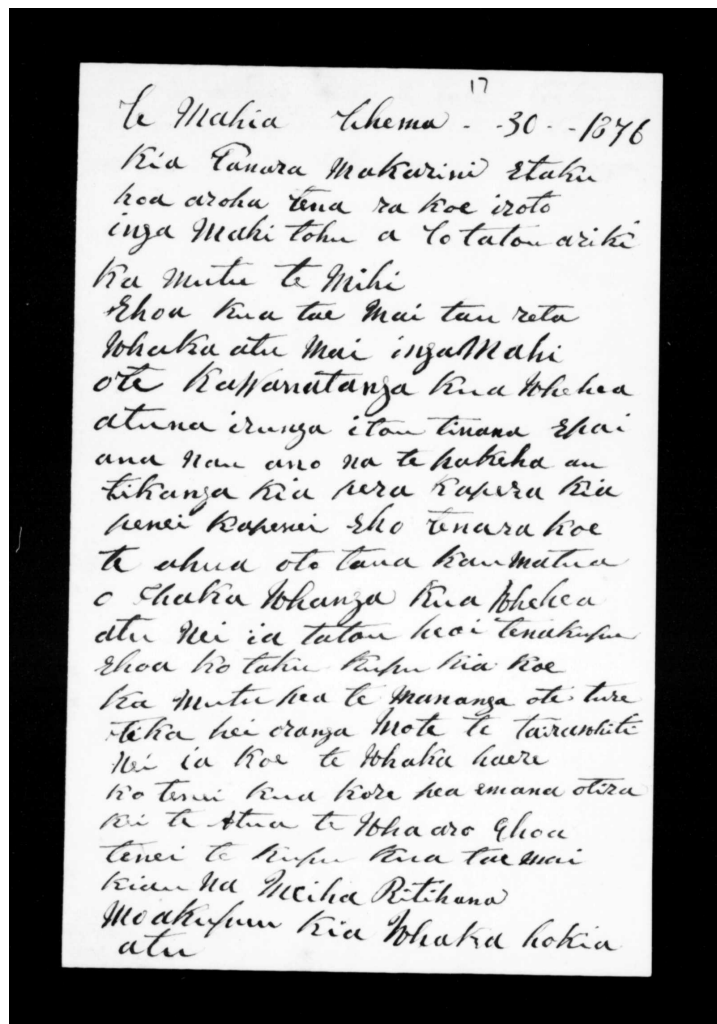 17
Te Mahia Tihema - - 30 - - 1876
Kia Tanara Makarini Etaku
hoa aroha tena ra koe iroto
inga Mahi tohu a to tatou ariki
Ka Mutu te Mihi
Ehoa Kua tae Mai tau reta
Whaka atu Mai inga Mahi
ote Kawanatanga Kua Wehea
atuna irunga itou tinana Epai
ana Nau ano na te pakeha au
tikanga Kia pera Kapera Kia
penei Kapenei Eho tenara koe
te ahua oto taua Kaumatua
o Ihaka Whanga Kua Wehea
atu Nei ia tatou heoi tenakupu
Ehoa ko taku Kupu kia Koe
Ka Mutu pea te Mananga ote ture
tika hei oranga Mote te tairawhiti
Nei ia Koe te Whaka haere
ko tenei kua kore pea emana otira
kei te Atua te Whaaro Ehoa
tenei te Kupu Kua tae mai
kiau Na Meiha Ritihana
Moakupuu Kia Whaka hokia
atu